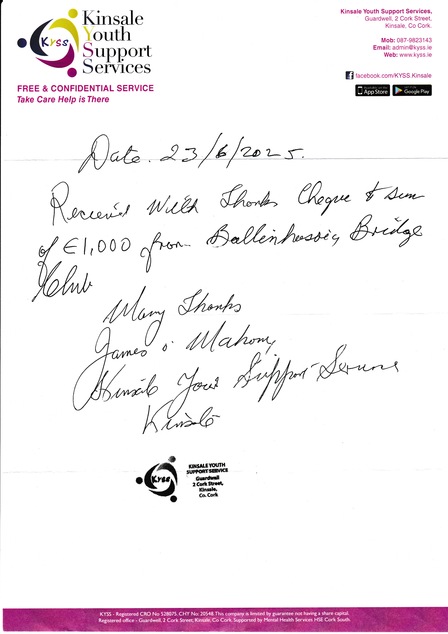 Kinsale
Youth
Support
Services
KYSS
FREE & CONFIDENTIAL SERVICE
Take Care Help is There
Kinsale Youth Support Services,
Guardwell, 2 Cork Street,
Kinsale, Co Cork.
Mob: 087-9823143
Email: admin@kyss.ie
Web: www.kyss.ie
facebook.com/KYSS.Kinsale
App Store
Google Play
Date. 23/6/2025.
Recieved With Thanks Cheque & sum
of €1,000 from Ballinhassig Bridge
Club
Many Thanks
James O'Mahony
Kinsale Your Support Service
Kinsale
KYSS
KINSALE YOUTH
SUPPORT SERVICE
Guardwell
2 Cork Street,
Kinsale,
Co. Cork
KYSS - Registered CRO No 528075. CHY No: 20548. This company is limited by guarantee not having a share capital.
Registered office - Guardwell, 2 Cork Street, Kinsale, Co Cork. Supported by Mental Health Services HSE Cork South.